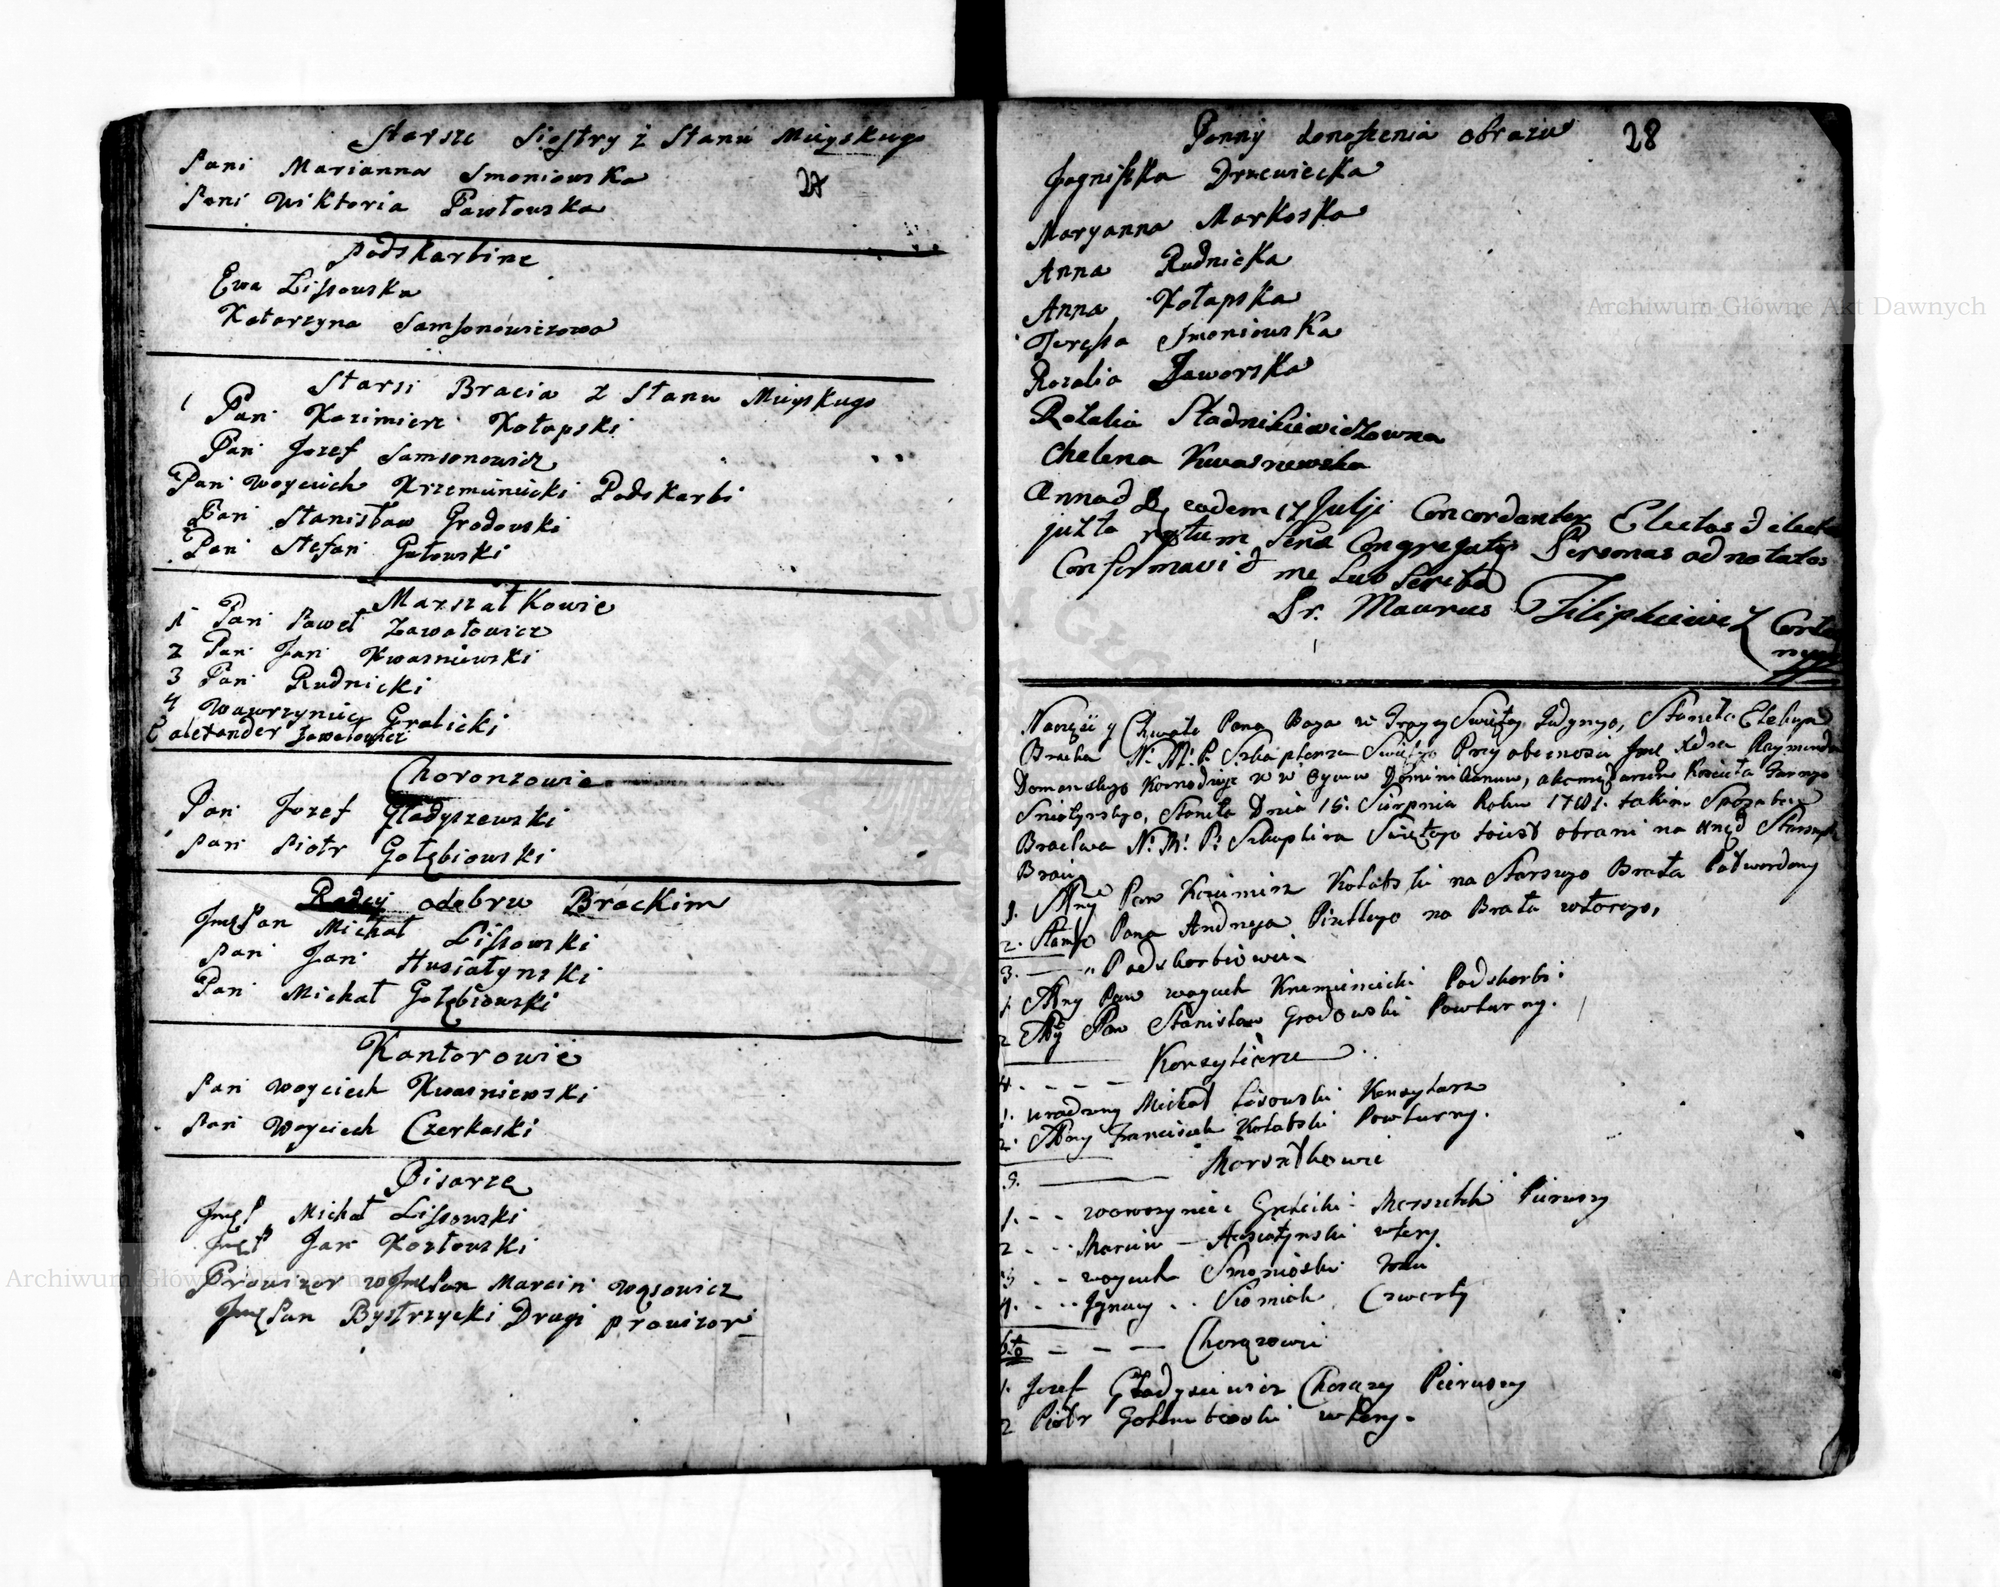 Starsze Siostry z Stanu Mieyskugo
27
Pani Marianna Smoniowska
Pani Wiktoria Pawłowska
Podskarbine
Ewa Lissowska
Katarzyna Samsonowiczowa
Starsi Bracia z Stanu Mieyskugo
1 Pan Kazimierz Kołapski
Pan Jozef Samsonowicz
Pan Woyciech Krzemieniecki Podskarbi
Pan Stanisław Grodowski
Pan Stefan Gutowski
Marszałkowie
1 Pan Paweł Zawałowicz
2 Pan Jan Kwasniewski
3 Pan Rudnicki
4 Wawrzyniec Gralicki
Alexander Zawałowicz
Choronzowie
Pan Jozef Gładyszewski
Pan Piotr Gołębiowski
Radcy o dobru Brackim
Jmć Pan Michał Lissowski
Pan Jan Husiatynski
Pan Michał Gołębiowski
Kantorowie
Pan Woyciech Kwasniewski
Pan Woyciech Czerkaski
Pisarze
Jmć P Michał Lissowski
Jmć P Jan Kozłowski
Prowizor w Jmć Pan Marcin Wąsowicz
Jmć Pan Bystrzycki Drugi prowizor
Panny do noszenia obrazu 28
Jagniszka Drzewiecka
Maryanna Markoska
Anna Rudnicka
Anna Kołapska
Teressa Smoniowska
Rozalia Jaworska
Rozalia Stadnikiewiczowna
Chelena Kwasnewska
Anna d eadem 17 Julji Concordanter Electos d elect
juxta votum Congregatis Personas adnotatas
Conformavi d me Subscribo
Fr. Maurus Filipkiewicz
Na częsć y Chwałę Pana Boga w Troycy Swiętey Jedynego, Staneła Elekcya
Bractwa N. M. P. Szkaplerza Swiętego Przy obecnosci Jmć Xdza Raymunda
Domanskiego w Oycow Dominikanow, Koscioła Farnego
Sniatynskiego, Staneła Dnia 15. Sierpnia Roku 1781. takim Sposobem
Bractwa N. M. P. Szkaplerza Swiętego toiest obrani na Urząd Starszych
Braci
1. Pan Kazimierz Kołabski na Starszego Brata Potwerdony
2. Pana Andrzeja na Brata wtorego,
3. Podskarbiowie
1. Pan Woyciech Krzemieniecki Podskarbi
2 Pan Stanisław Grodowski Powturny.
4. Konsyliarze
1. Uradzony Michał Lisowski Konsyliarz
2. Franciszek Kołabski Powturny.
5. Marszałkowie
1. Wawrzyniec Gralicki Marszałek Pierwszy
2. Marcin Husiatynski wtory
3 Woyciech Smonioski
4. Ignacy Siomiak Czwarty
6to Chorązowie
1. Jozef Gładysiewicz Chorązy Pierwszy
2 Piotr Golembioski wtory.
Archiwum Główne Akt Dawnych
Archiwum Główne Akt Dawnych